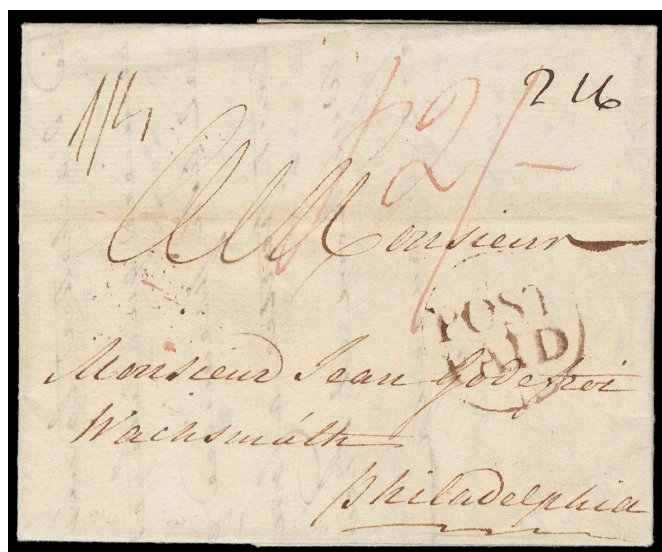 1/4
2/-
2 16
A Monsieur
POST
PAID
Monsieur Jean Godefroi
Wachsmúth
philadelphia